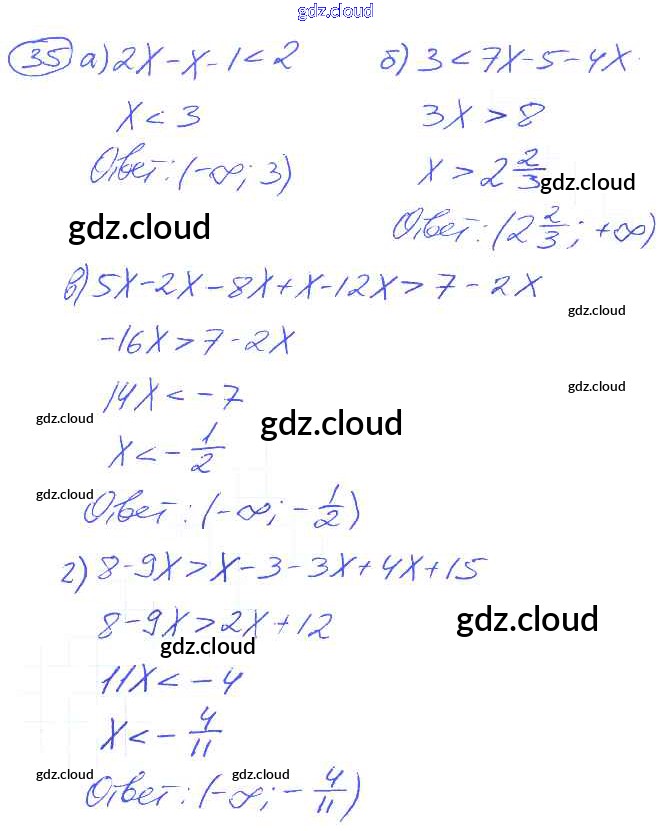 gdz.cloud
35 а) 2x-x-1<2 б) 3<7x-5-4x
x<3 3x>8
Ответ: (-∞; 3) x>2 2/3
gdz.cloud
gdz.cloud
Ответ: (2 2/3; +∞)
в) 5x-2x-8x+x-12x>7-2x
gdz.cloud
-16x>7-2x
gdz.cloud
14x<-7
gdz.cloud gdz.cloud
x<-1/2
gdz.cloud
Ответ: (-∞; -1/2)
г) 8-9x>x-3-3x+4x+15
8-9x>2x+12
gdz.cloud
gdz.cloud
11x<-4
x<-4/11
gdz.cloud gdz.cloud
Ответ: (-∞; -4/11)